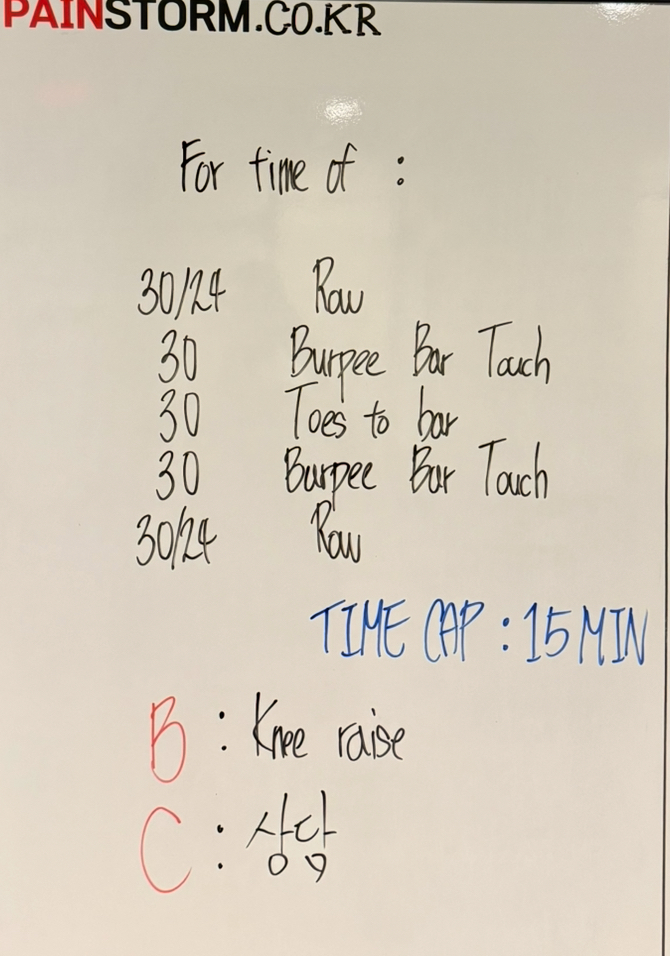 PAINSTORM.CO.KR
For time of :
30/24 Row
30 Burpee Bar Touch
30 Toes to bar
30 Burpee Bar Touch
30/24 Row
TIME CAP : 15 MIN
B : Knee raise
C : 상담